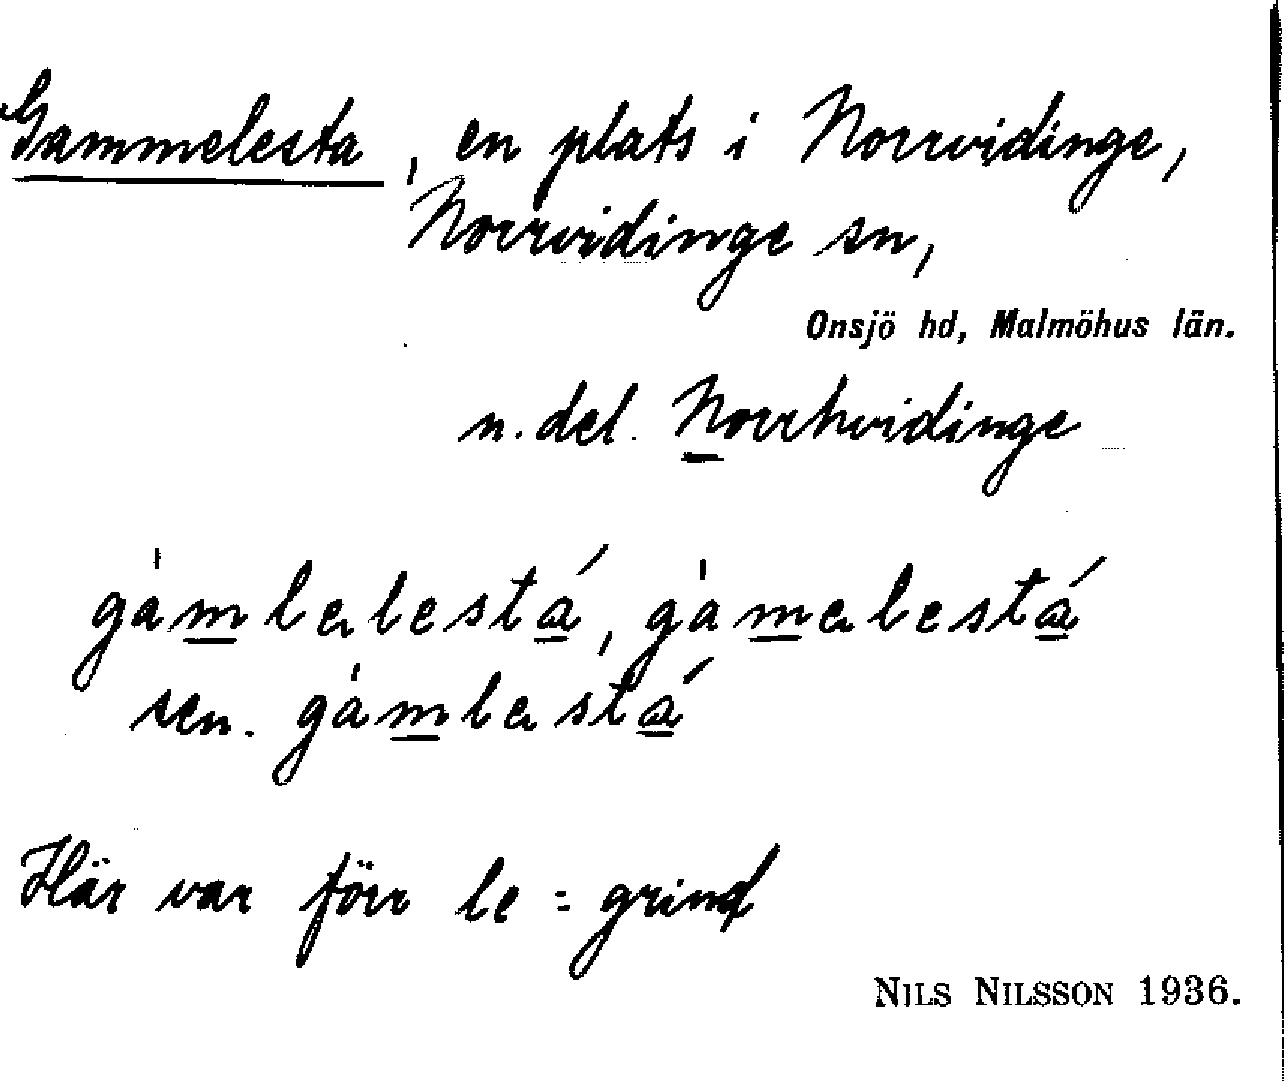 Gammelesta, en plats i Norrvidinge,
Norrvidinge sn,
Onsjö hd, Malmöhus län.
n. del. Norrhvidinge
gàmlelestá, gàmelestá
sen. gàmlestá
Här var förr le = grind
NILS NILSSON 1936.